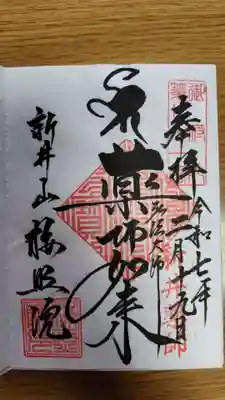 奉拝
令和七年
二月十九日
弘法大師
薬師如来
新井山
梅照院